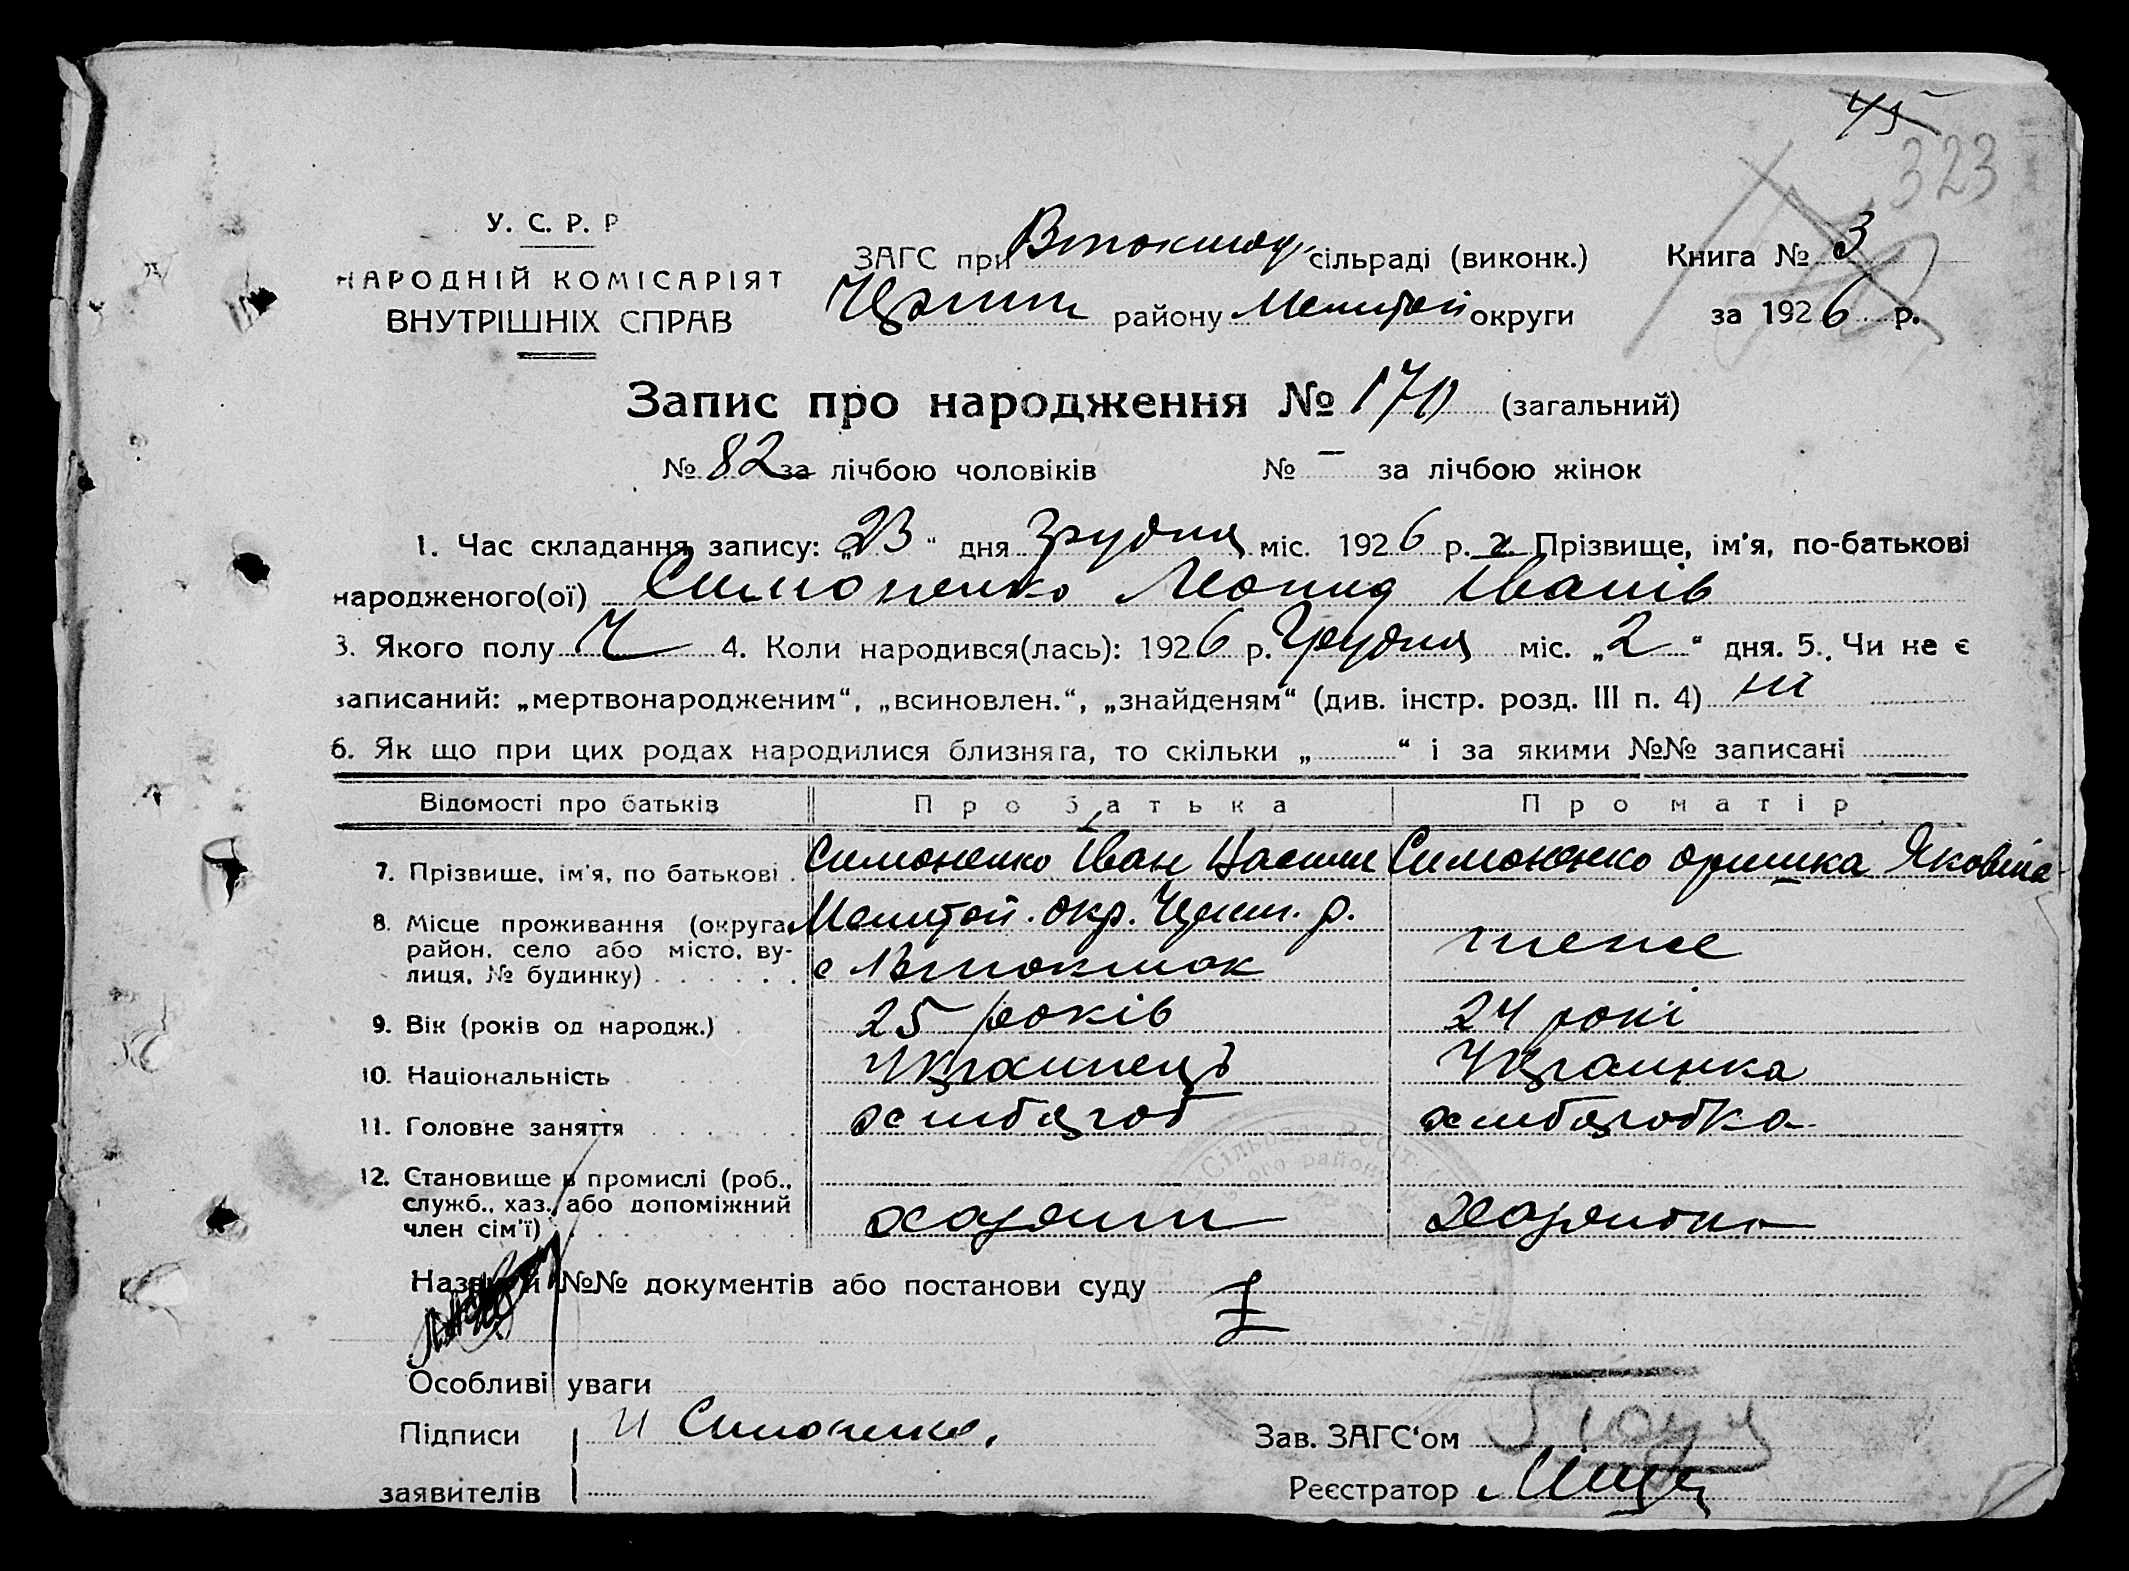 45
323
У. С. Р. Р
НАРОДНІЙ КОМІСАРІЯТ
ВНУТРІШНІХ СПРАВ
ЗАГС при Втокмац. сільраді (виконк.)
району Мелітой округи
Книга № 3
за 1926 р.
Запис про народження № 170 (загальний)
№ 82 за лічбою чоловіків № – за лічбою жінок
1. Час складання запису: „23“ дня Грудня міс. 1926 р. 2. Прізвище, ім'я, по-батькові
народженого(ої) Симоненко Леонид Іванів
3. Якого полу Ч 4. Коли народився(лась): 1926 р. Грудня міс. „2“ дня. 5. Чи не є
записаний: „мертвонародженим“, „всиновлен.“, „знайденям“ (див. інстр. розд. III п. 4) ні
6. Як що при цих родах народилися близнята, то скільки „ “ і за якими №№ записані
Відомості про батьків Про батька Про матір
7. Прізвище, ім'я, по батькові . Симоненко Іван Симоненко Оришка Яковна
8. Місце проживання (округа, район, село або місто, вулиця, № будинку) . . . . . .
Мелитой. окр. р.
с Втокмак
теже
9. Вік (років од народж.) . 25 років 24 рокі
10. Національність Украинець Украинка
11. Головне заняття . . . . . . хлибороб хлиборобка
12. Становище в промислі (роб., служб., хаз., або допоміжний член сім'ї) . . . . . . . .
хазяин хазяйка
Назва й №№ документів або постанови суду
Особливі уваги
Підписи
заявителів
И Симоненко.
Зав. ЗАГС'ом
Реєстратор